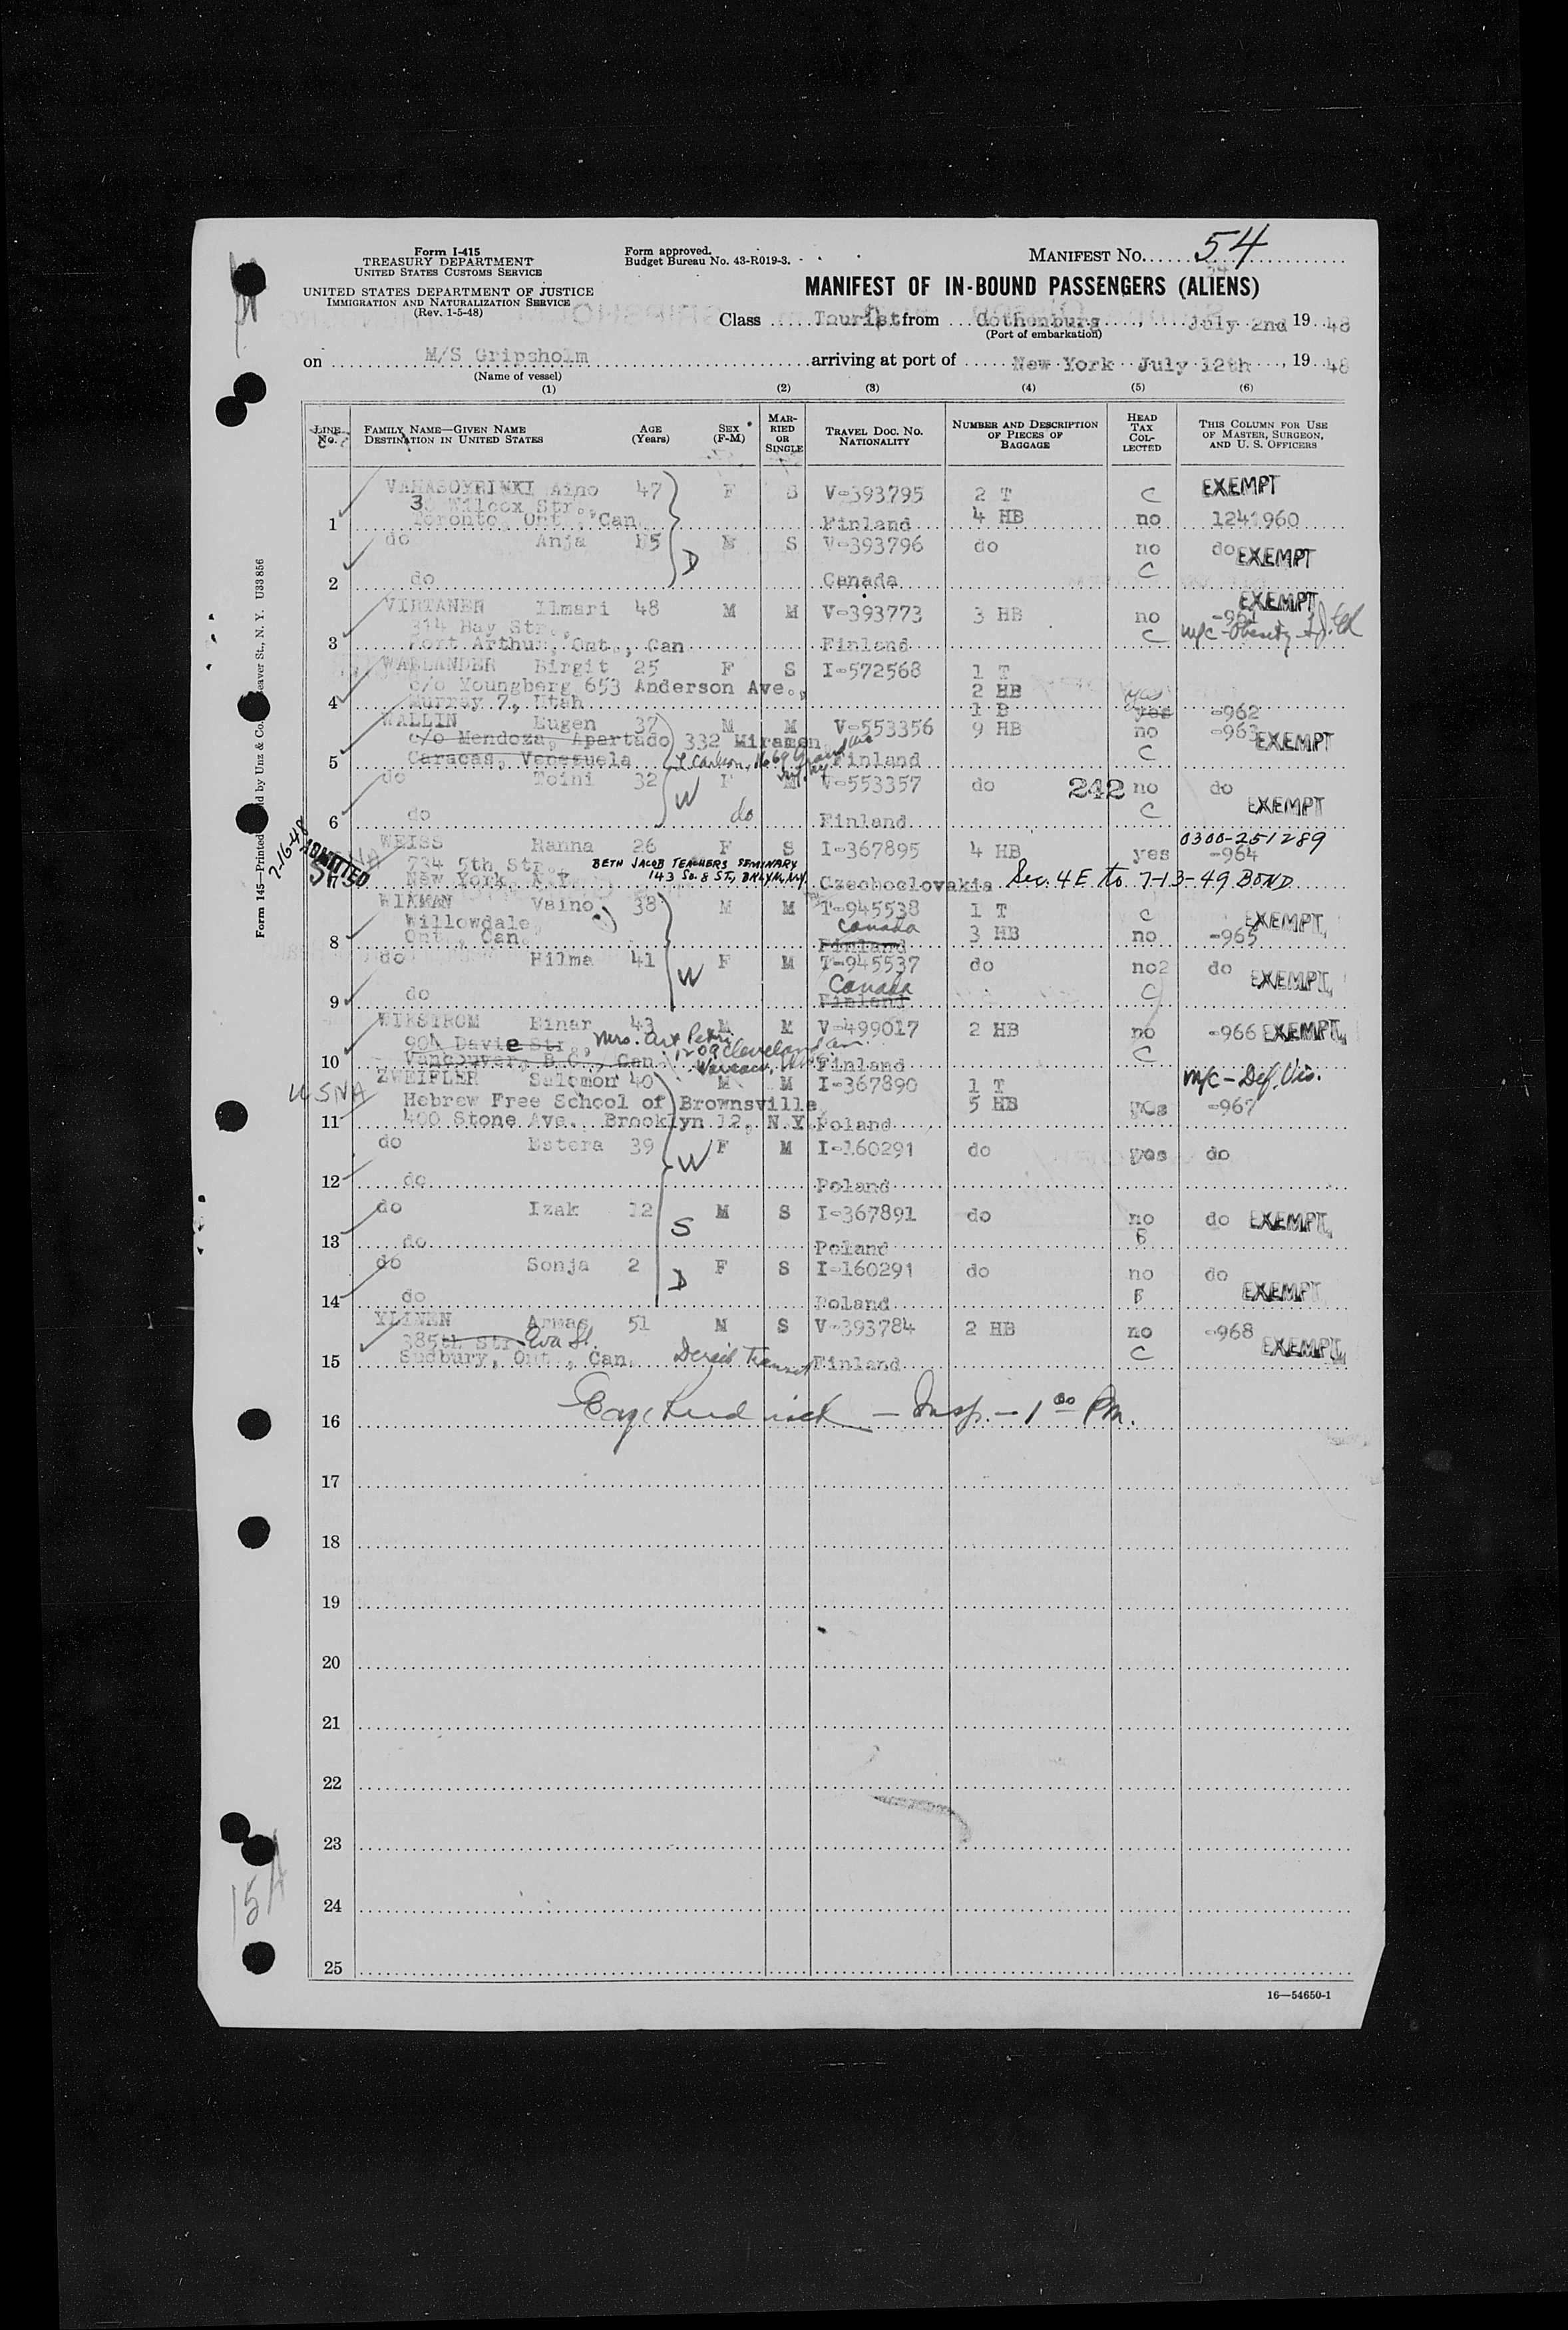 Form I-415
TREASURY DEPARTMENT
UNITED STATES CUSTOMS SERVICE
UNITED STATES DEPARTMENT OF JUSTICE
IMMIGRATION AND NATURALIZATION SERVICE
(Rev. 1-5-48)
Form approved.
Budget Bureau No. 43-R019-3.
MANIFEST No. 54
MANIFEST OF IN-BOUND PASSENGERS (ALIENS)
Class Tourist from Gothenburg, July 2nd 19 48
(Port of embarkation)
on M/S Gripsholm arriving at port of New York July 12th, 19 48
(Name of vessel)
(1) (2) (3) (4) (5) (6)
LINE No. FAMILY NAME—GIVEN NAME DESTINATION IN UNITED STATES AGE (Years) SEX (F-M) MARRIED OR SINGLE TRAVEL DOC. NO. NATIONALITY NUMBER AND DESCRIPTION OF PIECES OF BAGGAGE HEAD TAX COLLECTED THIS COLUMN FOR USE OF MASTER, SURGEON, AND U. S. OFFICERS
Aino 47 F S V-393795 2 T C EXEMPT
Wilcox Str.,
1 Toronto, Ont., Can Finland 4 HB no 1241960
do Anja S V-393796 do no do EXEMPT
D C
2 do Canada
EXEMPT
VIRTANEN Ilmari 48 M M V-393773 3 HB no -961
314 Bay Str., C M/C - Obesity
3 Port Arthur, Ont., Can Finland
WALLANDER Birgit 25 F S I-572568 1 T
c/o Youngberg 653 Anderson Ave., 2 HB yes
4 Murray 7, Utah 1 B yes -962
WALLIN Eugen 37 M M V-553356 9 HB no -963 EXEMPT
c/o Mendoza, Apartado 332 Miramon,
5 Caracas, Venezuela Finland C
do Toini 32 W F M V-553357 do 242 no do
6 do do Finland C EXEMPT
7-16-48 ADMITTED
0300-251289
WEISS Hanna 26 F S I-367895 4 HB yes -964
734 5th Str., BETH JACOB TEACHERS SEMINARY
New York, N.Y. 143 So. 8 ST., BKLYN, N.Y. Czechoslovakia Sec. 4 E to 7-13-49 BOND
WIKMAN Vaino 38 M M T-945538 1 T C EXEMPT
Willowdale, Canada
8 Ont., Can. Finland 3 HB no -965
do Hilma 41 W F M T-945537 do no do EXEMPT
Canada
9 do Finland C
WIKSTROM Einar 43 M M V-499017 2 HB no -966 EXEMPT
904 Davie Str., Mrs. Art 1209 Cleveland
10 Vancouver, B.C., Can Finland C
M/C - Def. Vis.
USNA
ZWEIFLER Salomon 40 M M I-367890 1 T
Hebrew Free School of Brownsville, 5 HB yes -967
11 400 Stone Ave., Brooklyn 12, N.Y. Poland
do Estera 39 W F M I-160291 do yes do
12 do Poland
do Izak 12 S M S I-367891 do no do EXEMPT
13 do Poland
do Sonja 2 D F S I-160291 do no do
14 do Poland EXEMPT
YLINEN Armas 51 M S V-393784 2 HB no -968
385 Eva St. EXEMPT
15 Sudbury, Ont., Can. Transit Finland C
16 — Insp. — 1 00 PM.
17
18
19
20
21
22
23
24
25
16—54650-1